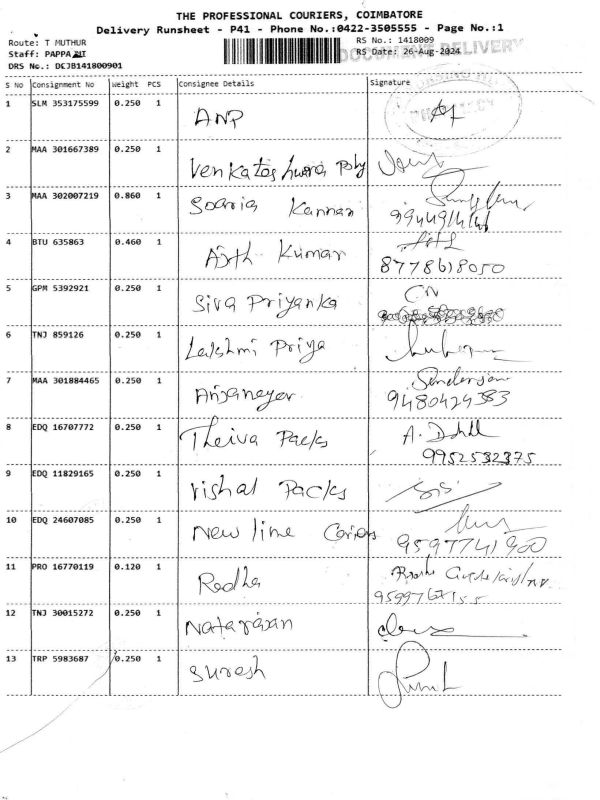 THE PROFESSIONAL COURIERS, COIMBATORE
Delivery Runsheet - P41 - Phone No.:0422-3505555 - Page No.:1
Route: T MUTHUR
RS No.: 1418009
Staff: PAPPA
RS Date: 26-Aug-2024
DOCUMENT DELIVERY
DRS No.: DCJB141800901
S No Consignment No Weight PCS Consignee Details Signature
1 SLM 353175599 0.250 1 ANP
2 MAA 301667389 0.250 1 Venkateshwara Poly
3 MAA 302007219 0.860 1 Sooria Kannan
4 BTU 635863 0.460 1 Ajith Kumar
8778618050
5 GPM 5392921 0.250 1 Siva Priyanka CN
6 TNJ 859126 0.250 1 Lakshmi Priya
7 MAA 301884465 0.250 1 Anjaneyar
9480424383
8 EDQ 16707772 0.250 1 Theiva Packs
9952532375
9 EDQ 11829165 0.250 1 Vishal Packs
10 EDQ 24607085 0.250 1 New line
9597741900
11 PRO 16770119 0.120 1 Radha
12 TNJ 30015272 0.250 1 Natarajan
13 TRP 5983687 0.250 1 Suresh